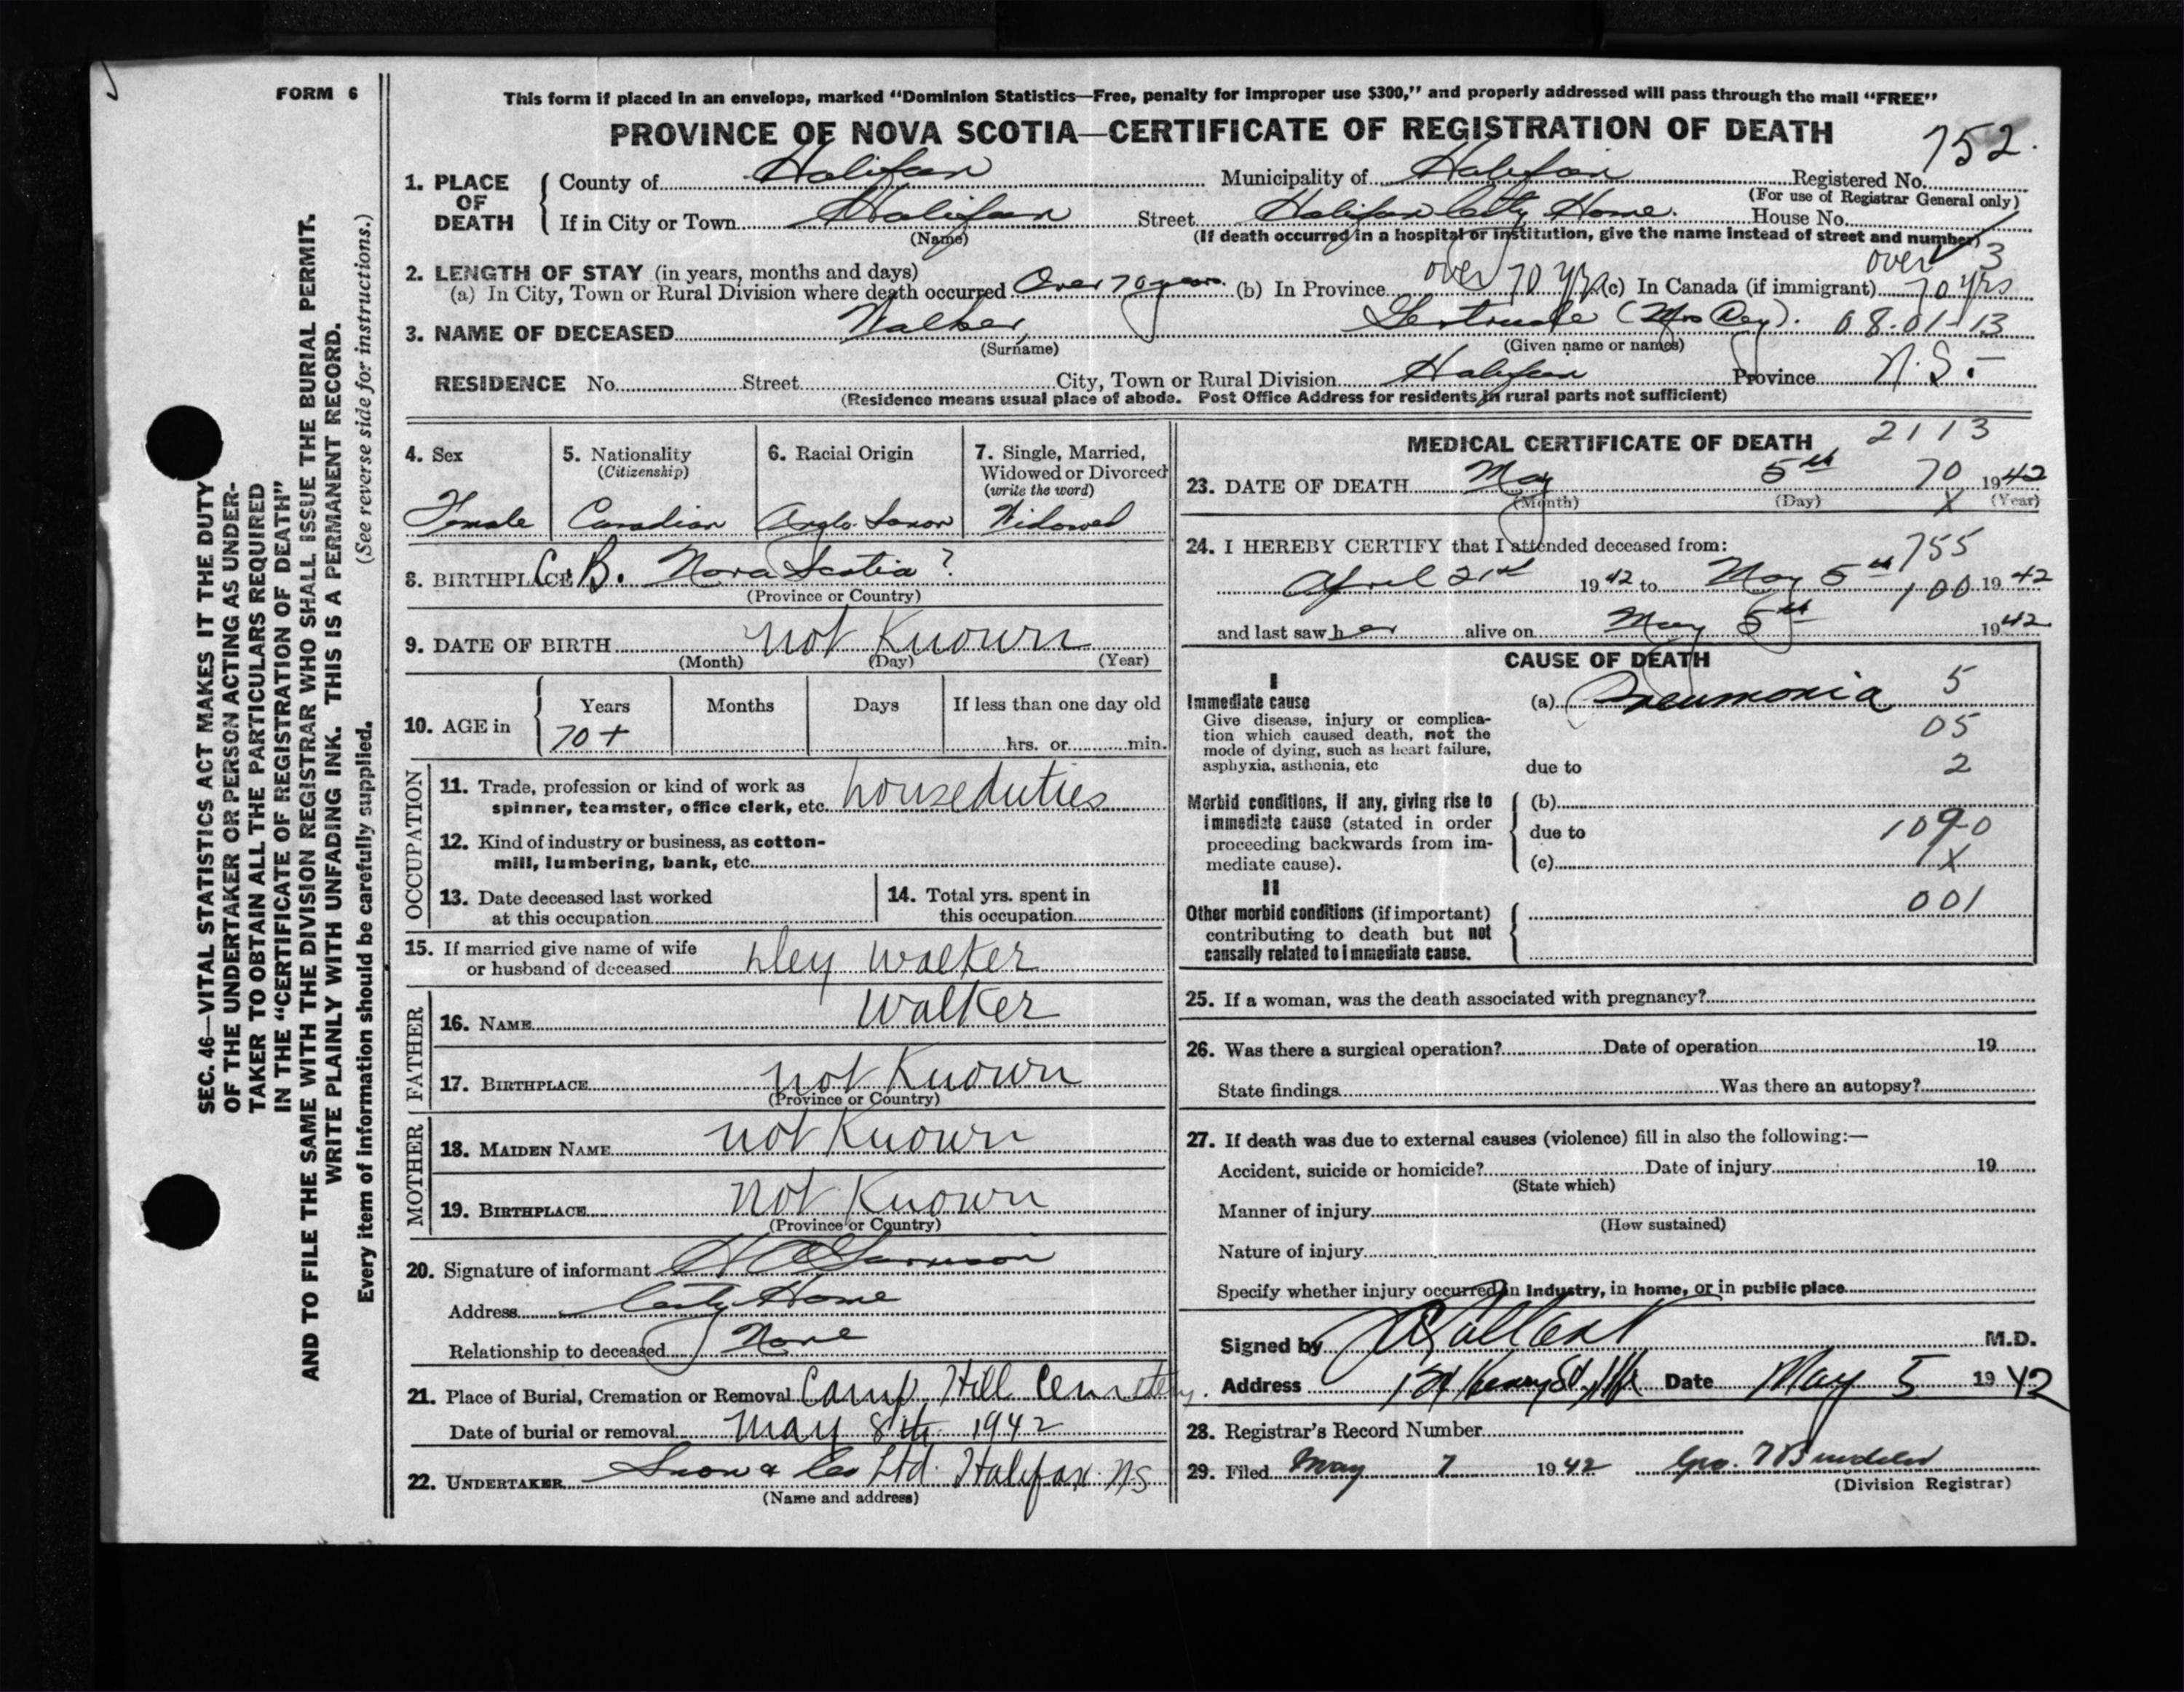 FORM 6
This form if placed in an envelope, marked "Dominion Statistics—Free, penalty for improper use $300," and properly addressed will pass through the mail "FREE"
PROVINCE OF NOVA SCOTIA—CERTIFICATE OF REGISTRATION OF DEATH
752.
1. PLACE OF DEATH
County of Halifax Municipality of Halifax Registered No.
(For use of Registrar General only)
If in City or Town Halifax Street Halifax City Home. House No.
(Name) (If death occurred in a hospital or institution, give the name instead of street and number)
2. LENGTH OF STAY (in years, months and days) over 3
(a) In City, Town or Rural Division where death occurred Over 70 years (b) In Province over 70 yrs (c) In Canada (if immigrant) 70 yrs
3. NAME OF DECEASED Walker, Gertrude (Mrs ). 08.01-13
(Surname) (Given name or names)
RESIDENCE No. Street City, Town or Rural Division Halifax Province N.S.-
(Residence means usual place of abode. Post Office Address for residents in rural parts not sufficient)
4. Sex
Female
5. Nationality
(Citizenship)
Canadian
6. Racial Origin
Anglo. Saxon
7. Single, Married,
Widowed or Divorced
(write the word)
Widowed
8. BIRTHPLACE C.B. Nova Scotia?
(Province or Country)
9. DATE OF BIRTH not Known
(Month) (Day) (Year)
10. AGE in Years Months Days If less than one day old
70+ hrs. or min.
OCCUPATION
11. Trade, profession or kind of work as
spinner, teamster, office clerk, etc. houseduties
12. Kind of industry or business, as cotton-
mill, lumbering, bank, etc.
13. Date deceased last worked
at this occupation
14. Total yrs. spent in
this occupation
15. If married give name of wife
or husband of deceased Walker
FATHER
16. NAME Walker
17. BIRTHPLACE not Known
(Province or Country)
MOTHER
18. MAIDEN NAME not Known
19. BIRTHPLACE not Known
(Province or Country)
20. Signature of informant
Address City Home
Relationship to deceased None
21. Place of Burial, Cremation or Removal Camp Hill Cemetery.
Date of burial or removal May 8th 1942
22. UNDERTAKER Snow & Co Ltd. Halifax. NS
(Name and address)
MEDICAL CERTIFICATE OF DEATH 2113
23. DATE OF DEATH May 5th 70 1942
(Month) (Day) X (Year)
24. I HEREBY CERTIFY that I attended deceased from: 755
April 21st 1942 to May 5th 100 1942
and last saw her alive on May 5th 1942
CAUSE OF DEATH
I
Immediate cause
Give disease, injury or complica-
tion which caused death, not the
mode of dying, such as heart failure,
asphyxia, asthenia, etc
(a) Pneumonia 5
05
due to 2
Morbid conditions, if any, giving rise to
immediate cause (stated in order
proceeding backwards from im-
mediate cause).
(b)
due to 1090
(c) X
II
Other morbid conditions (if important)
contributing to death but not
causally related to immediate cause.
001
25. If a woman, was the death associated with pregnancy?
26. Was there a surgical operation? Date of operation 19
State findings Was there an autopsy?
27. If death was due to external causes (violence) fill in also the following:—
Accident, suicide or homicide? Date of injury 19
(State which)
Manner of injury
(How sustained)
Nature of injury
Specify whether injury occurred in Industry, in home, or in public place
Signed by M.D.
Address Date May 5 1942
28. Registrar's Record Number
29. Filed May 7 1942 Geo.
(Division Registrar)
SEC. 46—VITAL STATISTICS ACT MAKES IT THE DUTY
OF THE UNDERTAKER OR PERSON ACTING AS UNDER-
TAKER TO OBTAIN ALL THE PARTICULARS REQUIRED
IN THE "CERTIFICATE OF REGISTRATION OF DEATH"
AND TO FILE THE SAME WITH THE DIVISION REGISTRAR WHO SHALL ISSUE THE BURIAL PERMIT.
WRITE PLAINLY WITH UNFADING INK. THIS IS A PERMANENT RECORD.
Every item of information should be carefully supplied. (See reverse side for instructions.)